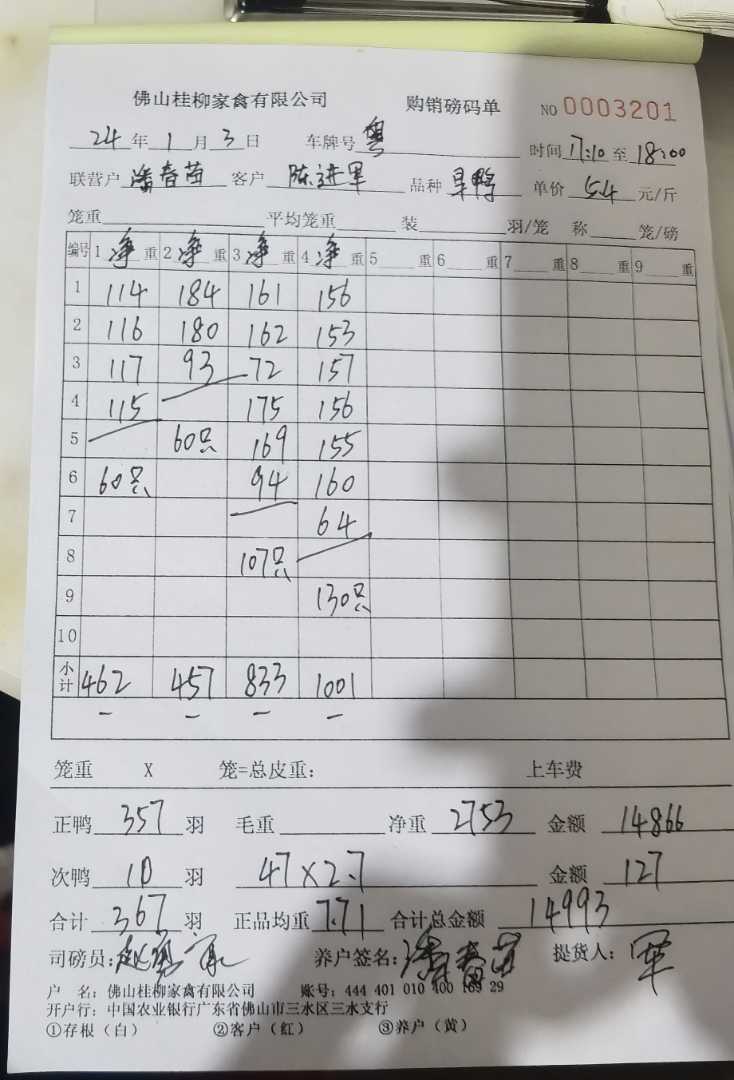 佛山桂柳家禽有限公司 购销磅码单 NO 0003201
24年1月3日 车牌号 粤 时间 17:10 至 18:00
联营户 潘春苗 客户 陈进军 品种 旱鸭 单价 5.4 元/斤
笼重 平均笼重 装 羽/笼 称 笼/磅
编号 1 净 重 2 净 重 3 净 重 4 净 重 5 重 6 重 7 重 8 重 9 重
1 114 184 161 156
2 116 180 162 153
3 117 93 72 157
4 115 175 156
5 60只 169 155
6 60只 94 160
7 64
8 107只
9 130只
10
小计 462 457 833 1001
笼重 X 笼=总皮重: 上车费
正鸭 357 羽 毛重 净重 2753 金额 14866
次鸭 10 羽 47×2.7 金额 127
合计 367 羽 正品均重 7.71 合计总金额 14993
司磅员: 养户签名: 潘春苗 提货人: 军
户 名: 佛山桂柳家禽有限公司 账号: 444 401 010 400 169 29
开户行: 中国农业银行广东省佛山市三水区三水支行
①存根(白) ②客户(红) ③养户(黄)